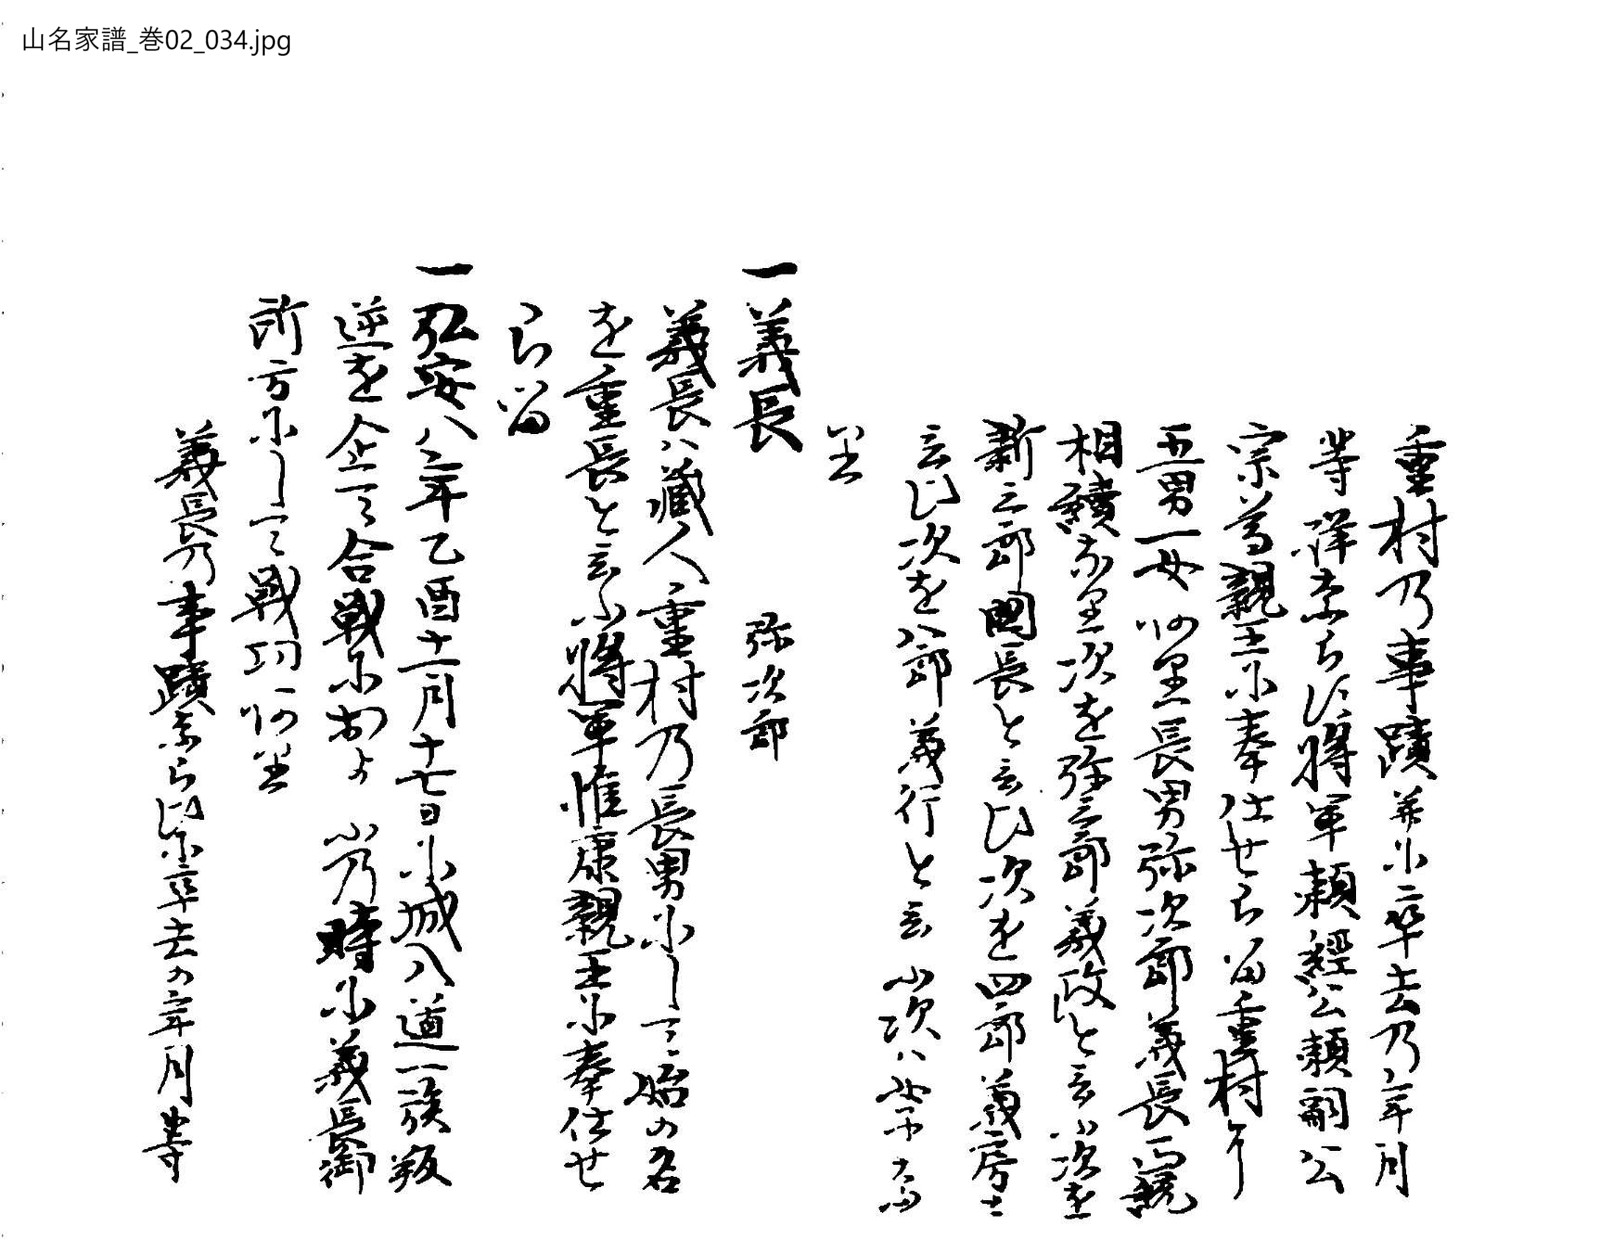 山名家譜_巻02_034.jpg
重村乃事蹟并に卒去乃年月
等詳ならす将軍頼経公頼嗣公
宗尊親王に奉仕せらる重村に
五男一女あり長男弥次郎義長家督
相續なり次を弥三郎義政と云ふ次を
新三郎国長と云ひ次を四郎義房と
云ひ次を八郎義行と云ふ次は女子なり
一義長 弥次郎
義長ハ蔵人重村乃長男にして始の名
を重長と云ふ将軍惟康親王に奉仕せ
らる
一弘安八年乙酉十一月十七日に城入道一族叛
逆を企て合戦におよふ乃時に義長御
所方にして戦功あり
義長乃事蹟ならひに卒去の年月等